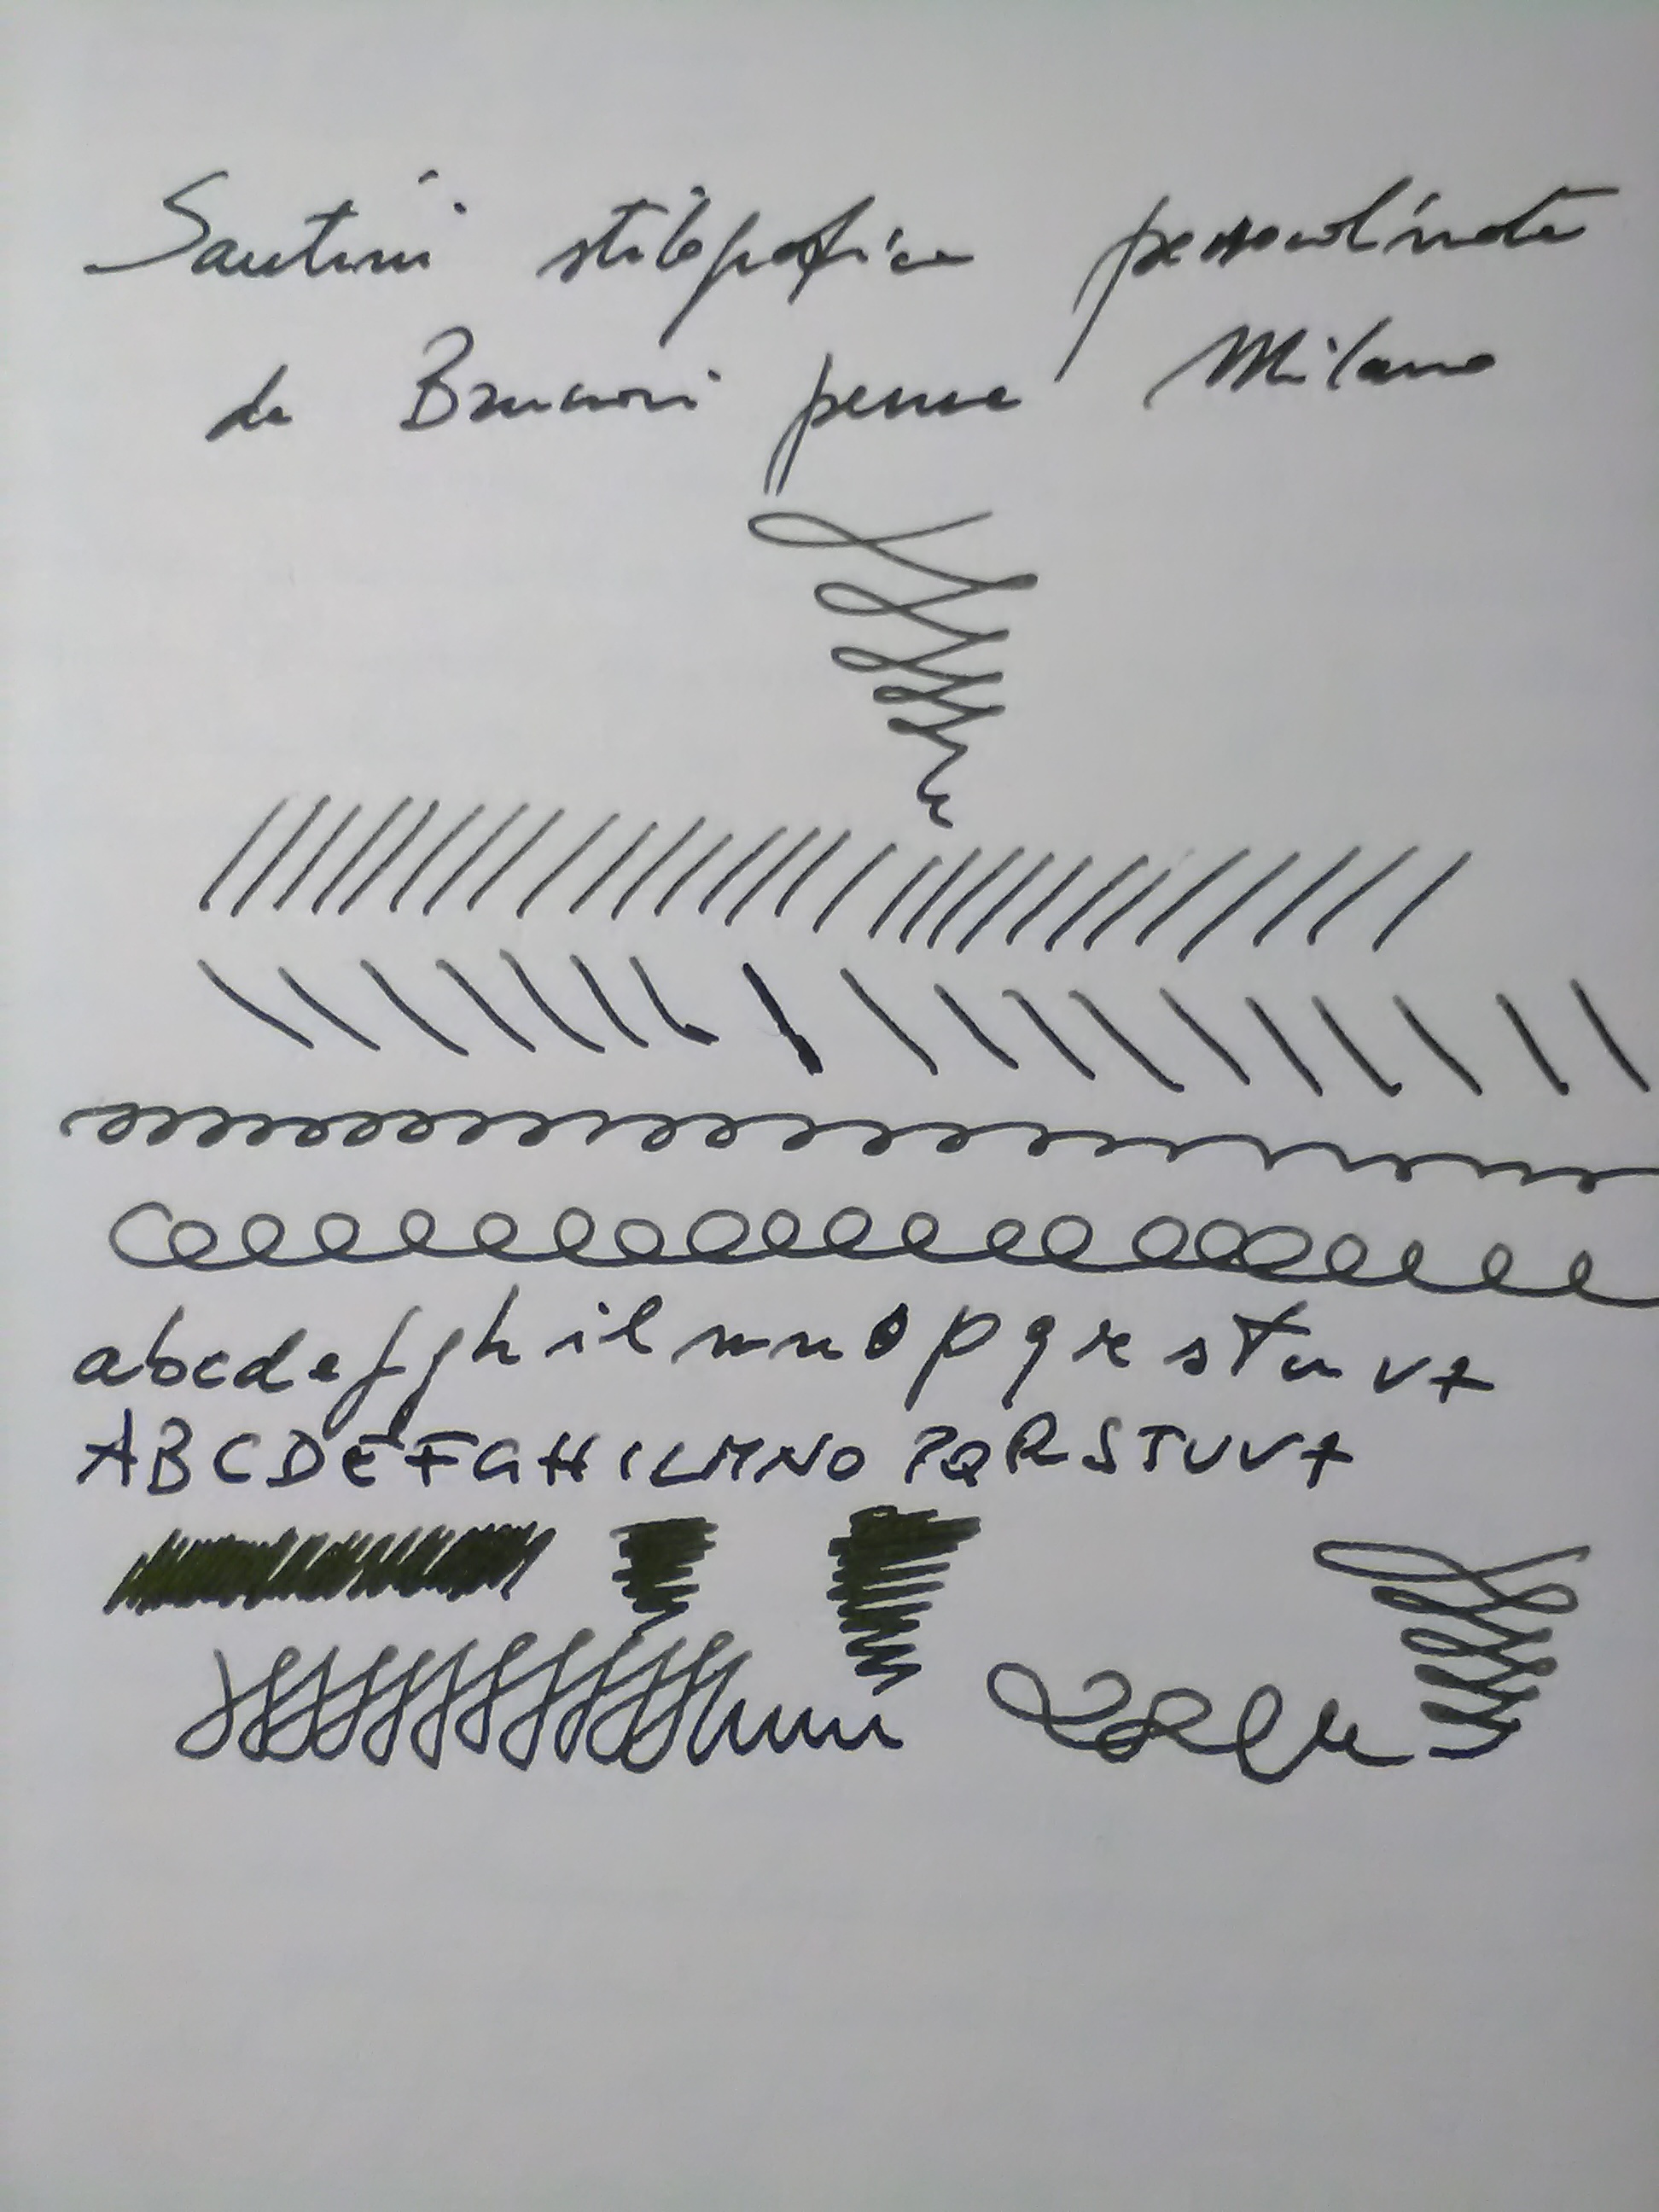 Santini stilografica personalizzata
da Bruciori penne Milano
abcdefghilmnopqrstuvz
ABCDEFGHILMNOPQRSTUVZ